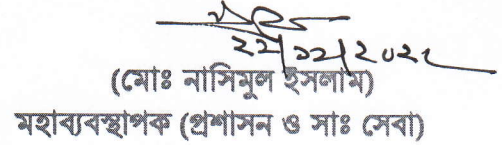 ২২/১২/২০২২
(মোঃ নাসিমুল ইসলাম)
মহাব্যবস্থাপক (প্রশাসন ও সাঃ সেবা)